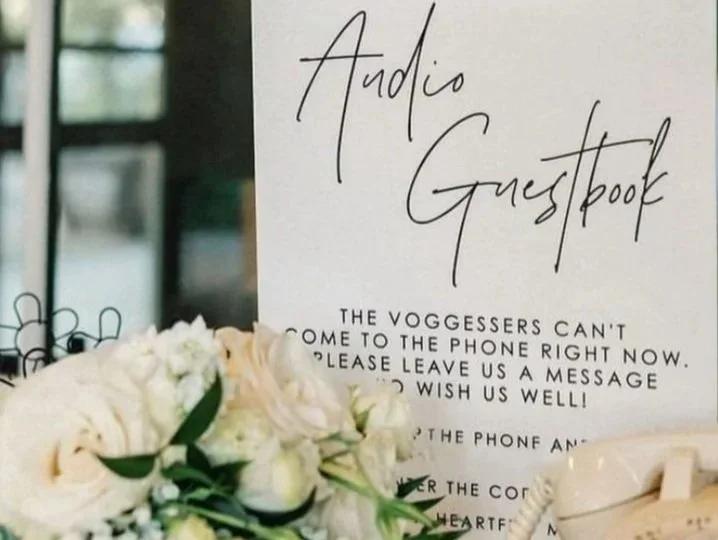 Audio
Guestbook
THE VOGGESSERS CAN'T
COME TO THE PHONE RIGHT NOW.
PLEASE LEAVE US A MESSAGE
WISH US WELL!
THE PHONE
THE